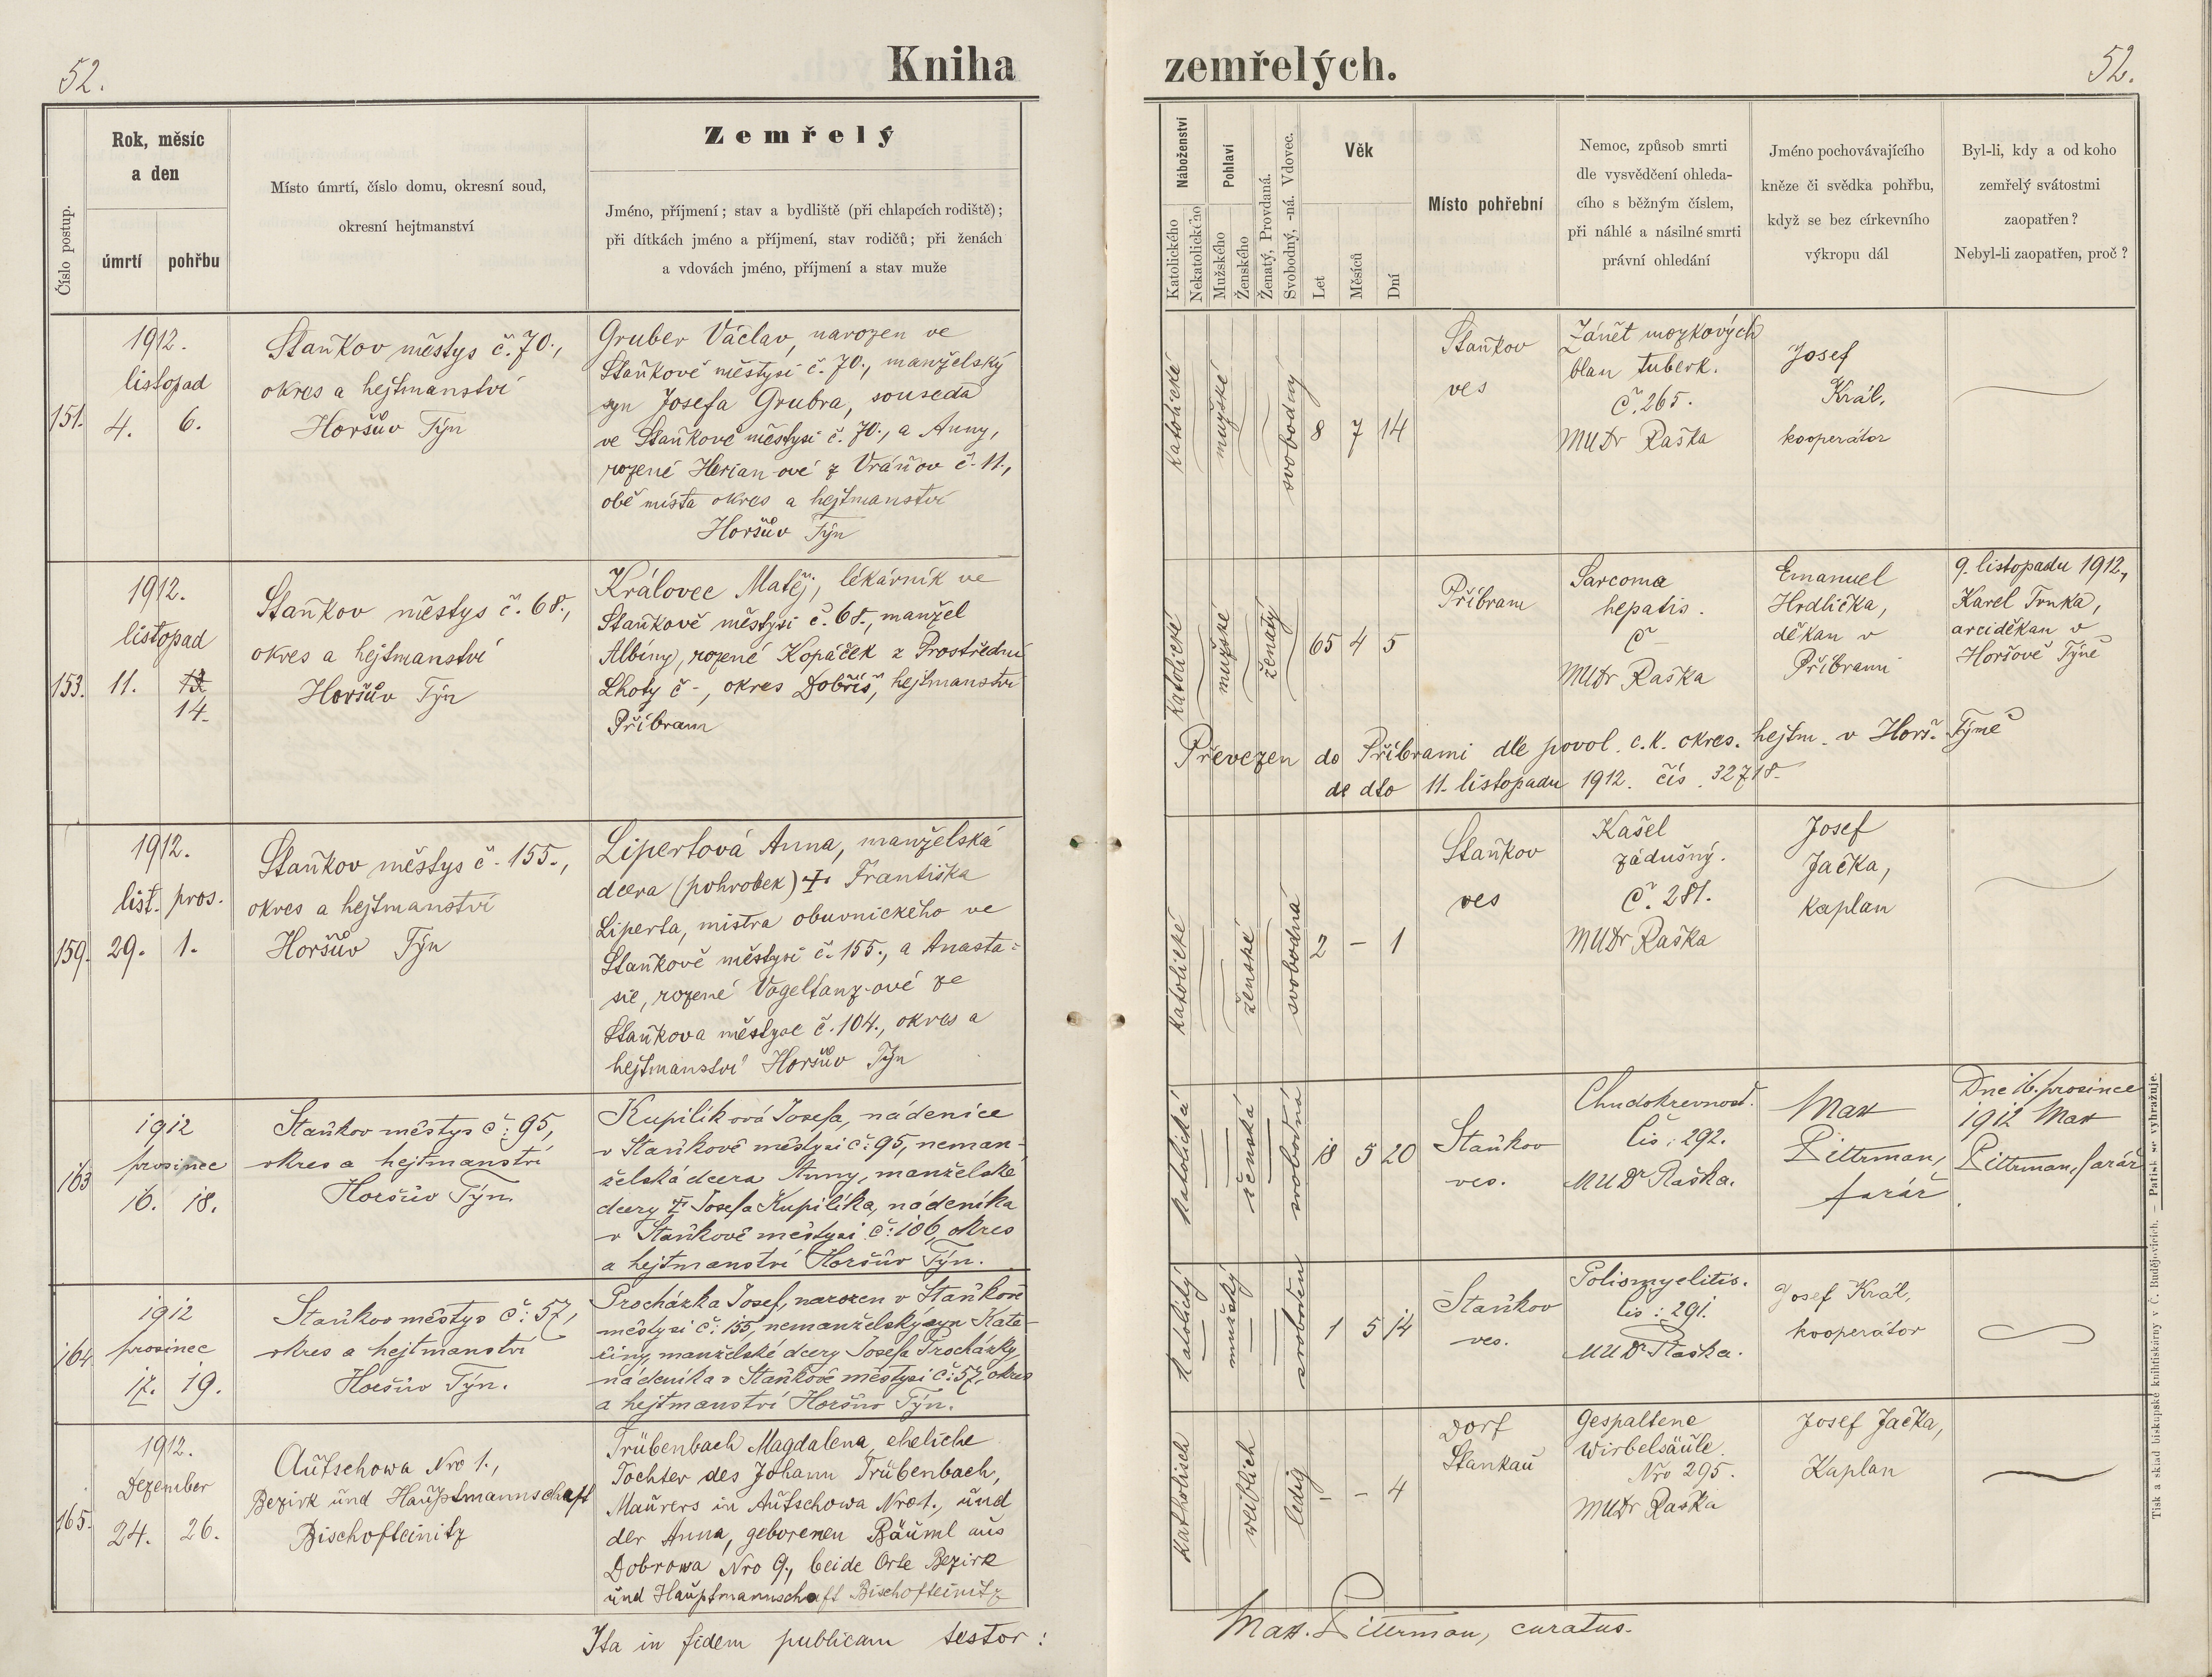 52.
Kniha
zemřelých.
52.
Číslo postup.
Rok, měsíc
a den
úmrtí
pohřbu
Místo úmrtí, číslo domu, okresní soud,
okresní hejtmanství
Zemřelý
Jméno, příjmení; stav a bydliště (při chlapcích rodiště);
při dítkách jméno a příjmení, stav rodičů; při ženách
a vdovách jméno, příjmení a stav muže
Náboženství
Katolického
Nekatolického
Pohlaví
Mužského
Ženského
Ženatý, Provdaná.
Svobodný, -ná. Vdovec.
Věk
Let
Měsíců
Dní
Místo pohřební
Nemoc, způsob smrti
dle vysvědčení ohleda-
cího s běžným číslem,
při náhlé a násilné smrti
právní ohledání
Jméno pochovávajícího
kněze či svědka pohřbu,
když se bez církevního
výkropu dál
Byl-li, kdy a od koho
zemřelý svátostmi
zaopatřen?
Nebyl-li zaopatřen, proč?
151.
1912.
listopad
4. 6.
Staňkov městys č. 70.,
okres a hejtmanství
Horšův Týn
Gruber Václav, narozen ve
Staňkově městysi č. 70., manželský
syn Josefa Grubra, souseda
ve Staňkově městysi č. 70., a Anny,
rozené Herian-ové z Vráňov č. 11.,
obě místa okres a hejtmanství
Horšův Týn
katolické
mužské
svobodný
8 7 14
Staňkov
ves
Zánět mozkových
blan tuberk.
Č. 265.
MUDr Raška
Josef
Král,
kooperátor
153.
1912.
listopad
11. 13
14.
Staňkov městys č. 68.,
okres a hejtmanství
Horšův Týn
Královec Matěj, lékárník ve
Staňkově městysi č. 68., manžel
Albiny, rozené Kopáček z Prostřední
Lhoty č -, okres Dobříš, hejtmanství
Příbram
katolické
mužské
ženatý
65 4 5
Příbram
Sarcoma
hepatis.
Č -
MUDr Raška
Emanuel
Hrdlička,
děkan v
Příbrami
9. listopadu 1912.,
Karel Trnka,
arciděkan v
Horšově Týně
Převezen do Příbrami dle povol. c.k. okres. hejtm. v Horš. Týně
de dto 11. listopadu 1912. čís. 32718.
159.
1912.
list. pros.
29. 1.
Staňkov městys č. 155.,
okres a hejtmanství
Horšův Týn
Lipertová Anna, manželská
dcera (pohrobek) †. Františka
Liperta, mistra obuvnického ve
Staňkově městysi č. 155., a Anasta-
sie, rozené Vogeltanz-ové ze
Staňkova městyse č. 104., okres a
hejtmanství Horšův Týn
katolické
ženské
svobodná
2 - 1
Staňkov
ves
Kašel
zádušný.
Č. 281.
MUDr Raška
Josef
Jačka,
kaplan
163
1912
prosinec
16. 18.
Staňkov městys č: 95,
okres a hejtmanství
Horšův Týn.
Kupilíková Josefa, nádenice
v Staňkově městysi č: 95, neman-
želská dcera Anny, manželské
dcery † Josefa Kupilíka, nádeníka
v Staňkově městysi č: 106, okres
a hejtmanství Horšův Týn.
katolická
ženská
svobodná
18 5 20
Staňkov
ves.
Chudokrevnost.
čis: 292.
MUDr Raška.
Max
Pittrman,
farář
Dne 16. prosince
1912 Max
Pittrman, farář
164
1912
prosinec
17. 19.
Staňkov městys č: 57,
okres a hejtmanství
Horšův Týn.
Procházka Josef, narozen v Staňkově
městysi č: 155, nemanželský syn Kate-
řiny, manželské dcery Josefa Procházky,
nádeníka v Staňkově městysi č: 57, okres
a hejtmanství Horšův Týn.
katolický
mužský
svoboden
1 5 14
Staňkov
ves.
Poliomyelitis.
čis: 291.
MUDr Raška.
Josef Král,
kooperátor
165.
1912.
Dezember
24. 26.
Autschowa Nro 1.,
Bezirk und Hauptmannschaft
Bischofteinitz
Trübenbach Magdalena, eheliche
Tochter des Johann Trübenbach,
Maurers in Autschowa Nro 1., und
der Anna, geborenen Bäuml aus
Dobrowa Nro 9., beide Orte Bezirk
und Hauptmannschaft Bischofteinitz
katholisch
weiblich
ledig
- - 4
Dorf
Stankau
Gespaltene
Wirbelsäule.
Nro 295.
MUDr Raška
Josef Jačka,
Kaplan
Ita in fidem publicam testor:
Max. Pittrman, curatus.
Tisk a sklad biskupské knihtiskárny v Č. Budějovicích. — Patisk se vyhražuje.